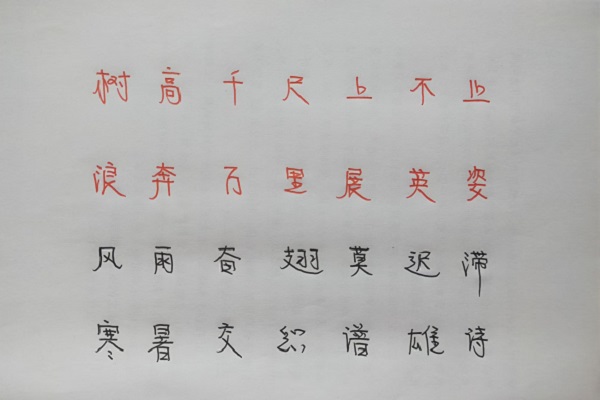 树高千尺上不止
浪奔万里展英姿
风雨奋翅莫迟滞
寒暑交织谱雄诗